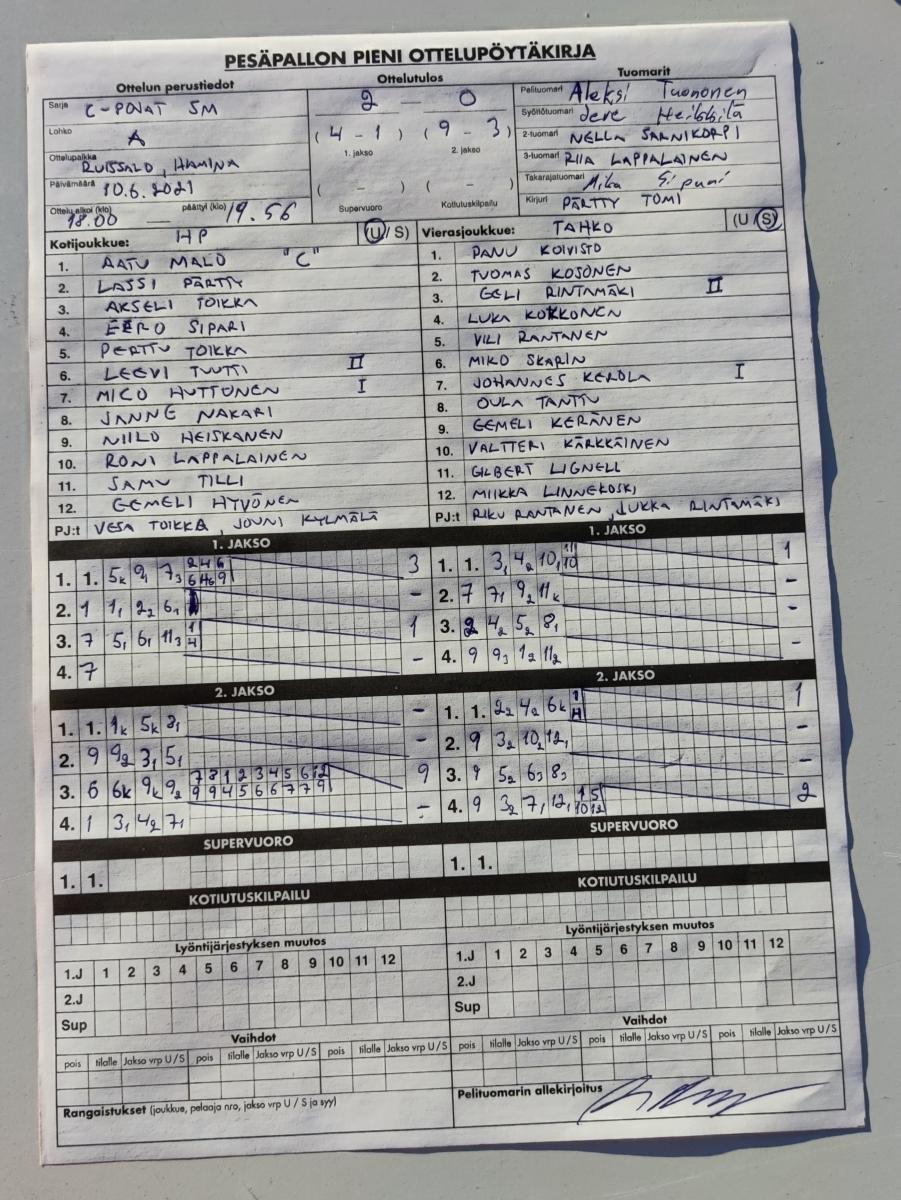 PESÄPALLON PIENI OTTELUPÖYTÄKIRJA
Ottelun perustiedot
Sarja C-POJAT SM
Lohko A
Ottelupaikka RUISSALO, HAMINA
Päivämäärä 10.6.2021
Ottelu alkoi (klo) 18.00 päättyi (klo) 19.56
Ottelutulos
2 - 0
(4 - 1) (9 - 3)
1. jakso 2. jakso
( - ) ( - )
Supervuoro Kotiutuskilpailu
Tuomarit
Pelituomari Aleksi Tuononen
Syöttötuomari Jere Heikkilä
2-tuomari NELLA SARNIKORPI
3-tuomari RIIA LAPPALAINEN
Takarajatuomari Mika Sipari
Kirjuri PÄRTTY TOMI
Kotijoukkue: HP (U / S)
1. AATU MALO "C"
2. LASSI PÄRTTY
3. AKSELI TOIKKA
4. EERO SIPARI
5. PERTTU TOIKKA
6. LEEVI TUUTTI II
7. MICO HUTTUNEN I
8. JANNE NAKARI
9. NIILO HEISKANEN
10. RONI LAPPALAINEN
11. SAMU TILLI
12. EEMELI HYVÖNEN
PJ:t VESA TOIKKA, JOUNI KYLMÄLÄ
Vierasjoukkue: TAHKO (U / S)
1. PANU KOIVISTO
2. TUOMAS KOSONEN
3. EELI RINTAMÄKI II
4. LUKA KOKKONEN
5. VILI RANTANEN
6. MIKO SKARIN
7. JOHANNES KEROLA I
8. OULA TANTTU
9. EEMELI KERÄNEN
10. VALTTERI KÄRKKÄINEN
11. GILBERT LIGNELL
12. MIIKKA LINNEKOSKI
PJ:t RIKU RANTANEN, JUKKA RINTAMÄKI
1. JAKSO
1. 1. 5k 9, 73 2 4 6 3
6 46 9
2. 1 1, 22 6, -
3. 7 5, 6, 113 1 1
4
4. 7 -
1. JAKSO
1. 1. 3, 42 10, 11 1
10
2. 7 7, 92 11k -
3. 2 42 52 8, -
4. 9 93 12 112 -
2. JAKSO
1. 1. 1k 5k 8, -
2. 9 92 3, 5, -
3. 6 6k 9k 92 7 8 1 2 3 4 5 6 12 9
9 9 4 5 6 6 7 7 9
4. 1 3, 42 7, -
2. JAKSO
1. 1. 22 42 6k 1 1
2. 9 32 102 12, -
3. 9 52 63 83 -
4. 9 32 7, 12, 1 5 2
10 12
SUPERVUORO
1. 1.
KOTIUTUSKILPAILU
SUPERVUORO
1. 1.
KOTIUTUSKILPAILU
Lyöntijärjestyksen muutos
1.J 1 2 3 4 5 6 7 8 9 10 11 12
2.J
Sup
Vaihdot
pois tilalle Jakso vrp U / S pois tilalle Jakso vrp U / S pois tilalle Jakso vrp U / S
Rangaistukset (joukkue, pelaaja nro, jakso vrp U / S ja syy)
Lyöntijärjestyksen muutos
1.J 1 2 3 4 5 6 7 8 9 10 11 12
2.J
Sup
Vaihdot
pois tilalle Jakso vrp U / S pois tilalle Jakso vrp U / S pois tilalle Jakso vrp U / S
Pelituomarin allekirjoitus